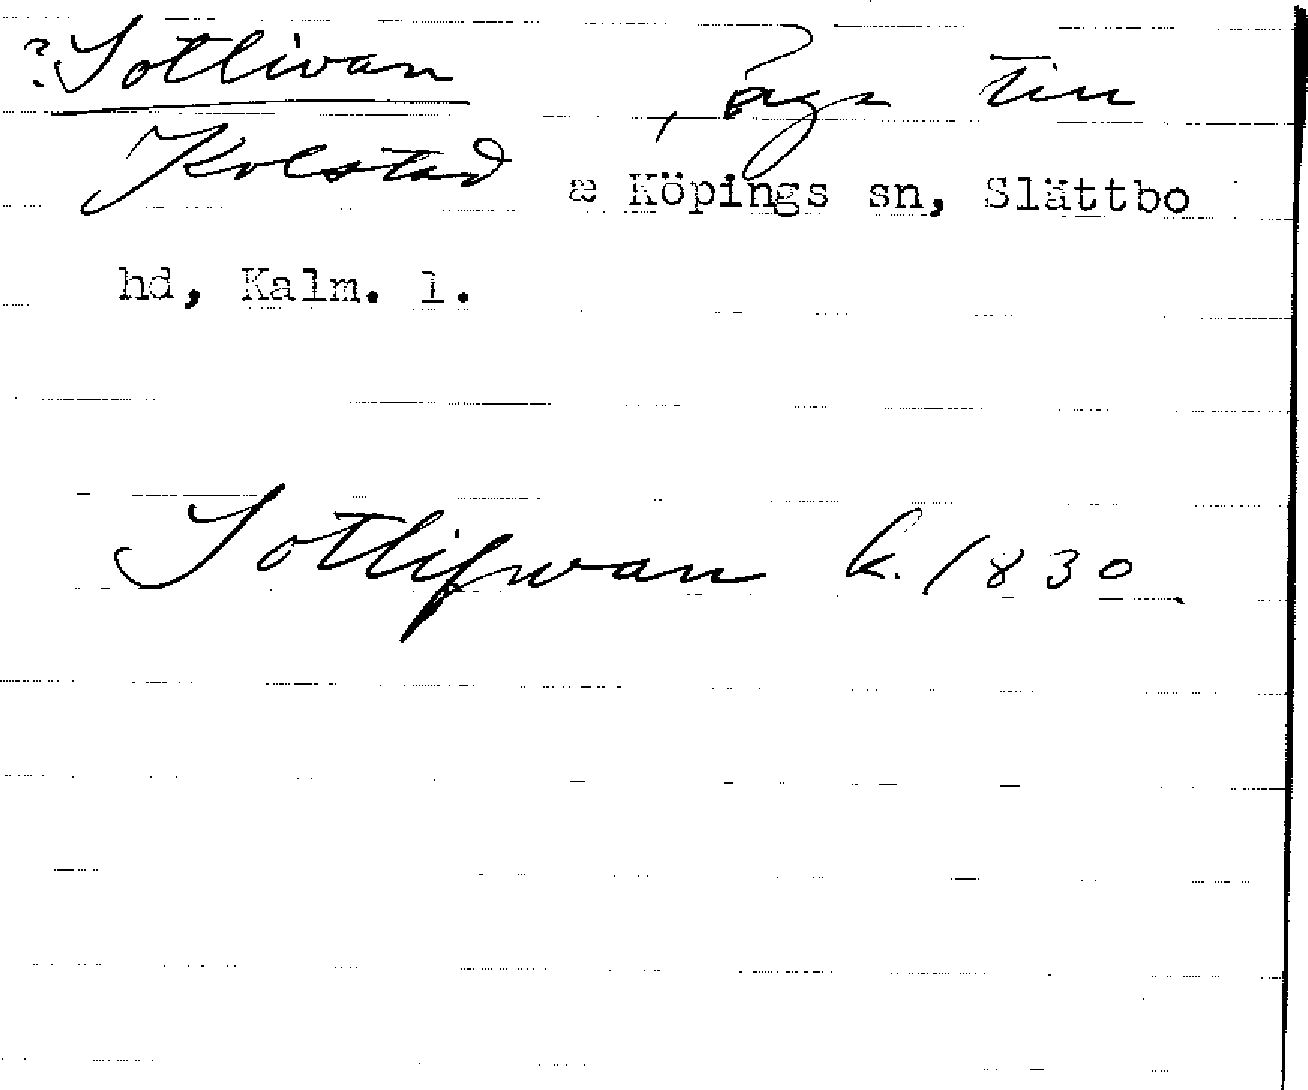 ?Sotlivan, äga till
Kolstad æ Köpings sn, Slättbo
hd, Kalm. l.
Sotlifwan k. 1830